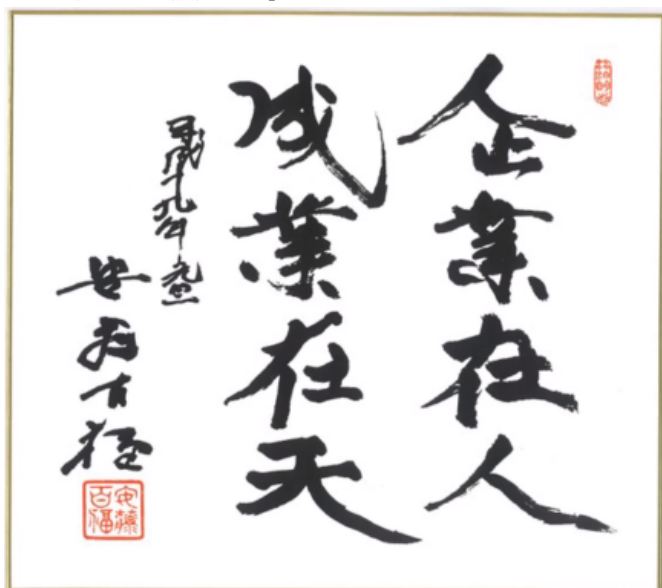 企業在人
成業在天
平成十九年 元旦
安藤百福
安藤
百福